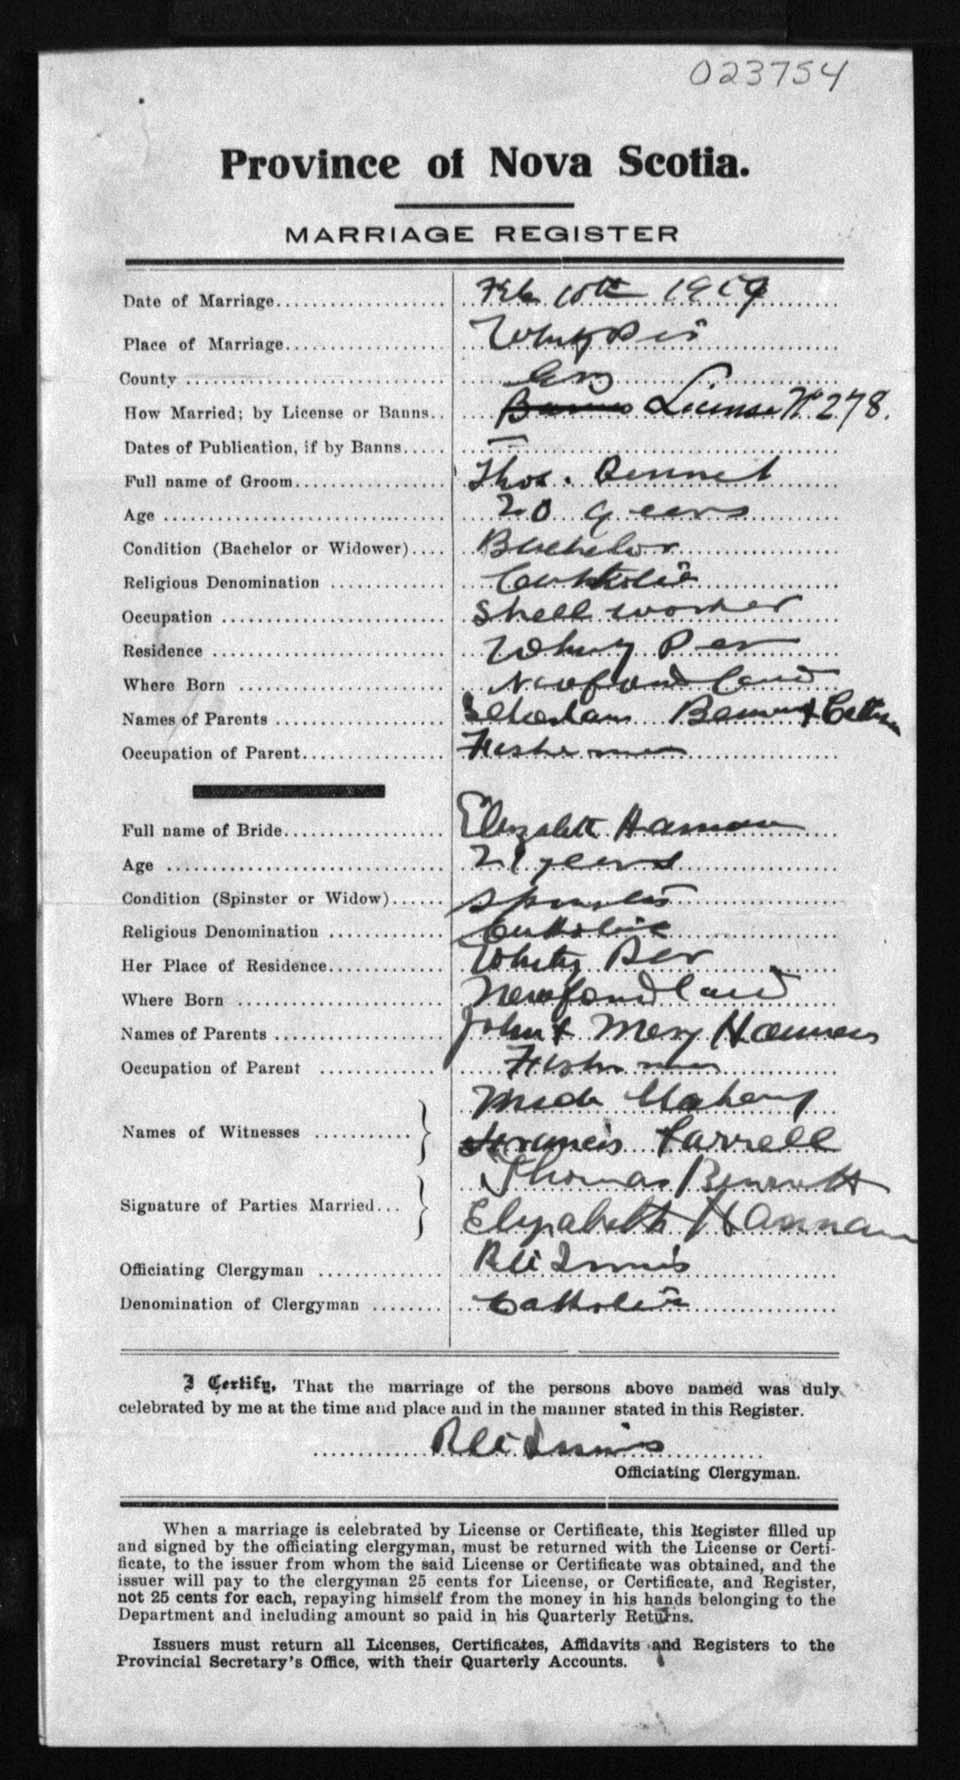 023754
Province of Nova Scotia.
MARRIAGE REGISTER
Date of Marriage Feb 10th 1919
Place of Marriage Whitney Pier
County
How Married; by License or Banns Banns License No 278.
Dates of Publication, if by Banns —
Full name of Groom Thos. Bennet
Age 20 years
Condition (Bachelor or Widower) Bachelor
Religious Denomination Catholic
Occupation Steel worker
Residence Whitney Pier
Where Born Newfoundland
Names of Parents
Occupation of Parent Fisherman
Full name of Bride Elizabeth Hannan
Age 21 years
Condition (Spinster or Widow) Spinster
Religious Denomination Catholic
Her Place of Residence Whitney Pier
Where Born Newfoundland
Names of Parents John & Mary Hannan
Occupation of Parent Fisherman
Names of Witnesses
Francis Farrell
Thomas Bennett
Signature of Parties Married
Elizabeth Hannan
Officiating Clergyman
Denomination of Clergyman Catholic
I Certify, That the marriage of the persons above named was duly
celebrated by me at the time and place and in the manner stated in this Register.
Officiating Clergyman.
When a marriage is celebrated by License or Certificate, this Register filled up
and signed by the officiating clergyman, must be returned with the License or Certi-
ficate, to the issuer from whom the said License or Certificate was obtained, and the
issuer will pay to the clergyman 25 cents for License, or Certificate, and Register,
not 25 cents for each, repaying himself from the money in his hands belonging to the
Department and including amount so paid in his Quarterly Returns.
Issuers must return all Licenses, Certificates, Affidavits and Registers to the
Provincial Secretary's Office, with their Quarterly Accounts.